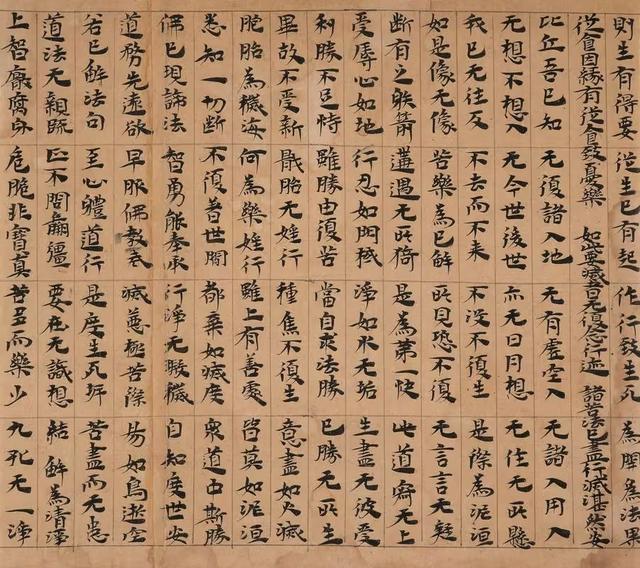 則生有得要 從生已有起 作行致生死 為開為法果
從食因緣有 從食致憂樂 如此要滅者 无復念行迹 諸苦法已盡 行滅湛然安
比丘吾已知 无復諸入地 无有虛空入 无諸入用入
无想不想入 无今世後世 亦无日月想 无住无所懸
我已无往反 不去而不来 不没不復生 是際為泥洹
如是像无像 苦樂為已解 所見恐不復 无言言无疑
断有之䠶箭 遘遇无所倚 是為第一快 此道寂无上
受辱心如地 行忍如門閾 淨如水无垢 生盡无彼受
利勝不足恃 雖勝由復苦 當自求法勝 已勝无所生
畢故不受新 猒胎无婬行 種焦不復生 意盡如火滅
胞胎為穢海 何為樂婬行 雖上有善處 皆莫如泥洹
悉知一切断 不復著世間 都棄如滅度 衆道中斯勝
佛已現諦法 智勇能奉承 行淨无瑕穢 自知度世安
道務先遠欲 早服佛教戒 滅惡極苦際 易如鳥逝空
若已解法句 至心體道行 是度生死岸 苦盡而无患
道法无親踈 正不問羸彊 要在无識想 結解為清淨
上智饜腐身 危脆非實真 苦多而樂少 九孔无一淨